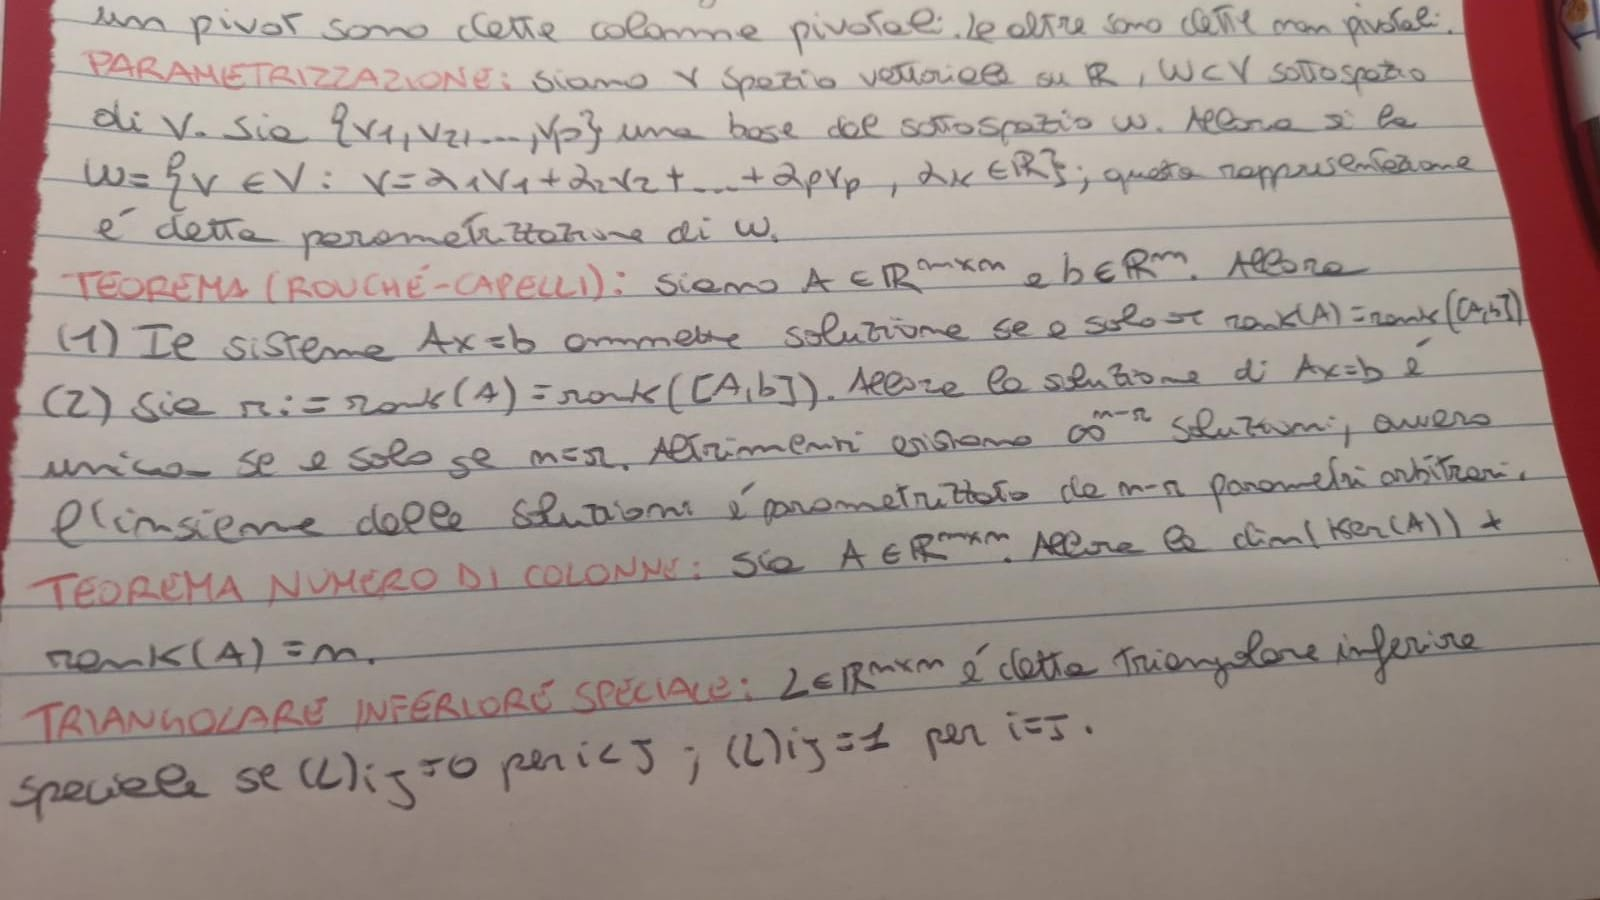 un pivot sono dette colonne pivotali. le altre sono dette non pivotali.
PARAMETRIZZAZIONE: siano V spazio vettoriale su ℝ, W⊂V sottospazio
di V. Sia {v1, v2, ..., vp} una base del sottospazio W. Allora si ha
W={v ∈ V : v=α1v1+α2v2+...+αpvp, αk ∈ ℝ}; questa rappresentazione
é detta parametrizzazione di W.
TEOREMA (ROUCHÉ-CAPELLI): siano A ∈ ℝ^m×n e b ∈ ℝ^m. Allora
(1) Il sistema Ax=b ammette soluzione se e solo se rank(A)=rank([A,b])
(2) Sia r:=rank(A)=rank([A,b]). Allora la soluzione di Ax=b é
unica se e solo se n=r. Altrimenti esistono ∞^n-r soluzioni, ovvero
l'insieme delle soluzioni é parametrizzato da n-r parametri arbitrari.
TEOREMA NUMERO DI COLONNE: Sia A ∈ ℝ^m×n. Allora la dim(Ker(A)) +
rank(A)=n.
TRIANGOLARE INFERIORE SPECIALE: L∈ℝ^m×m é detta triangolare inferiore
speciale se (L)ij=0 per i<j ; (L)ij=1 per i=j.